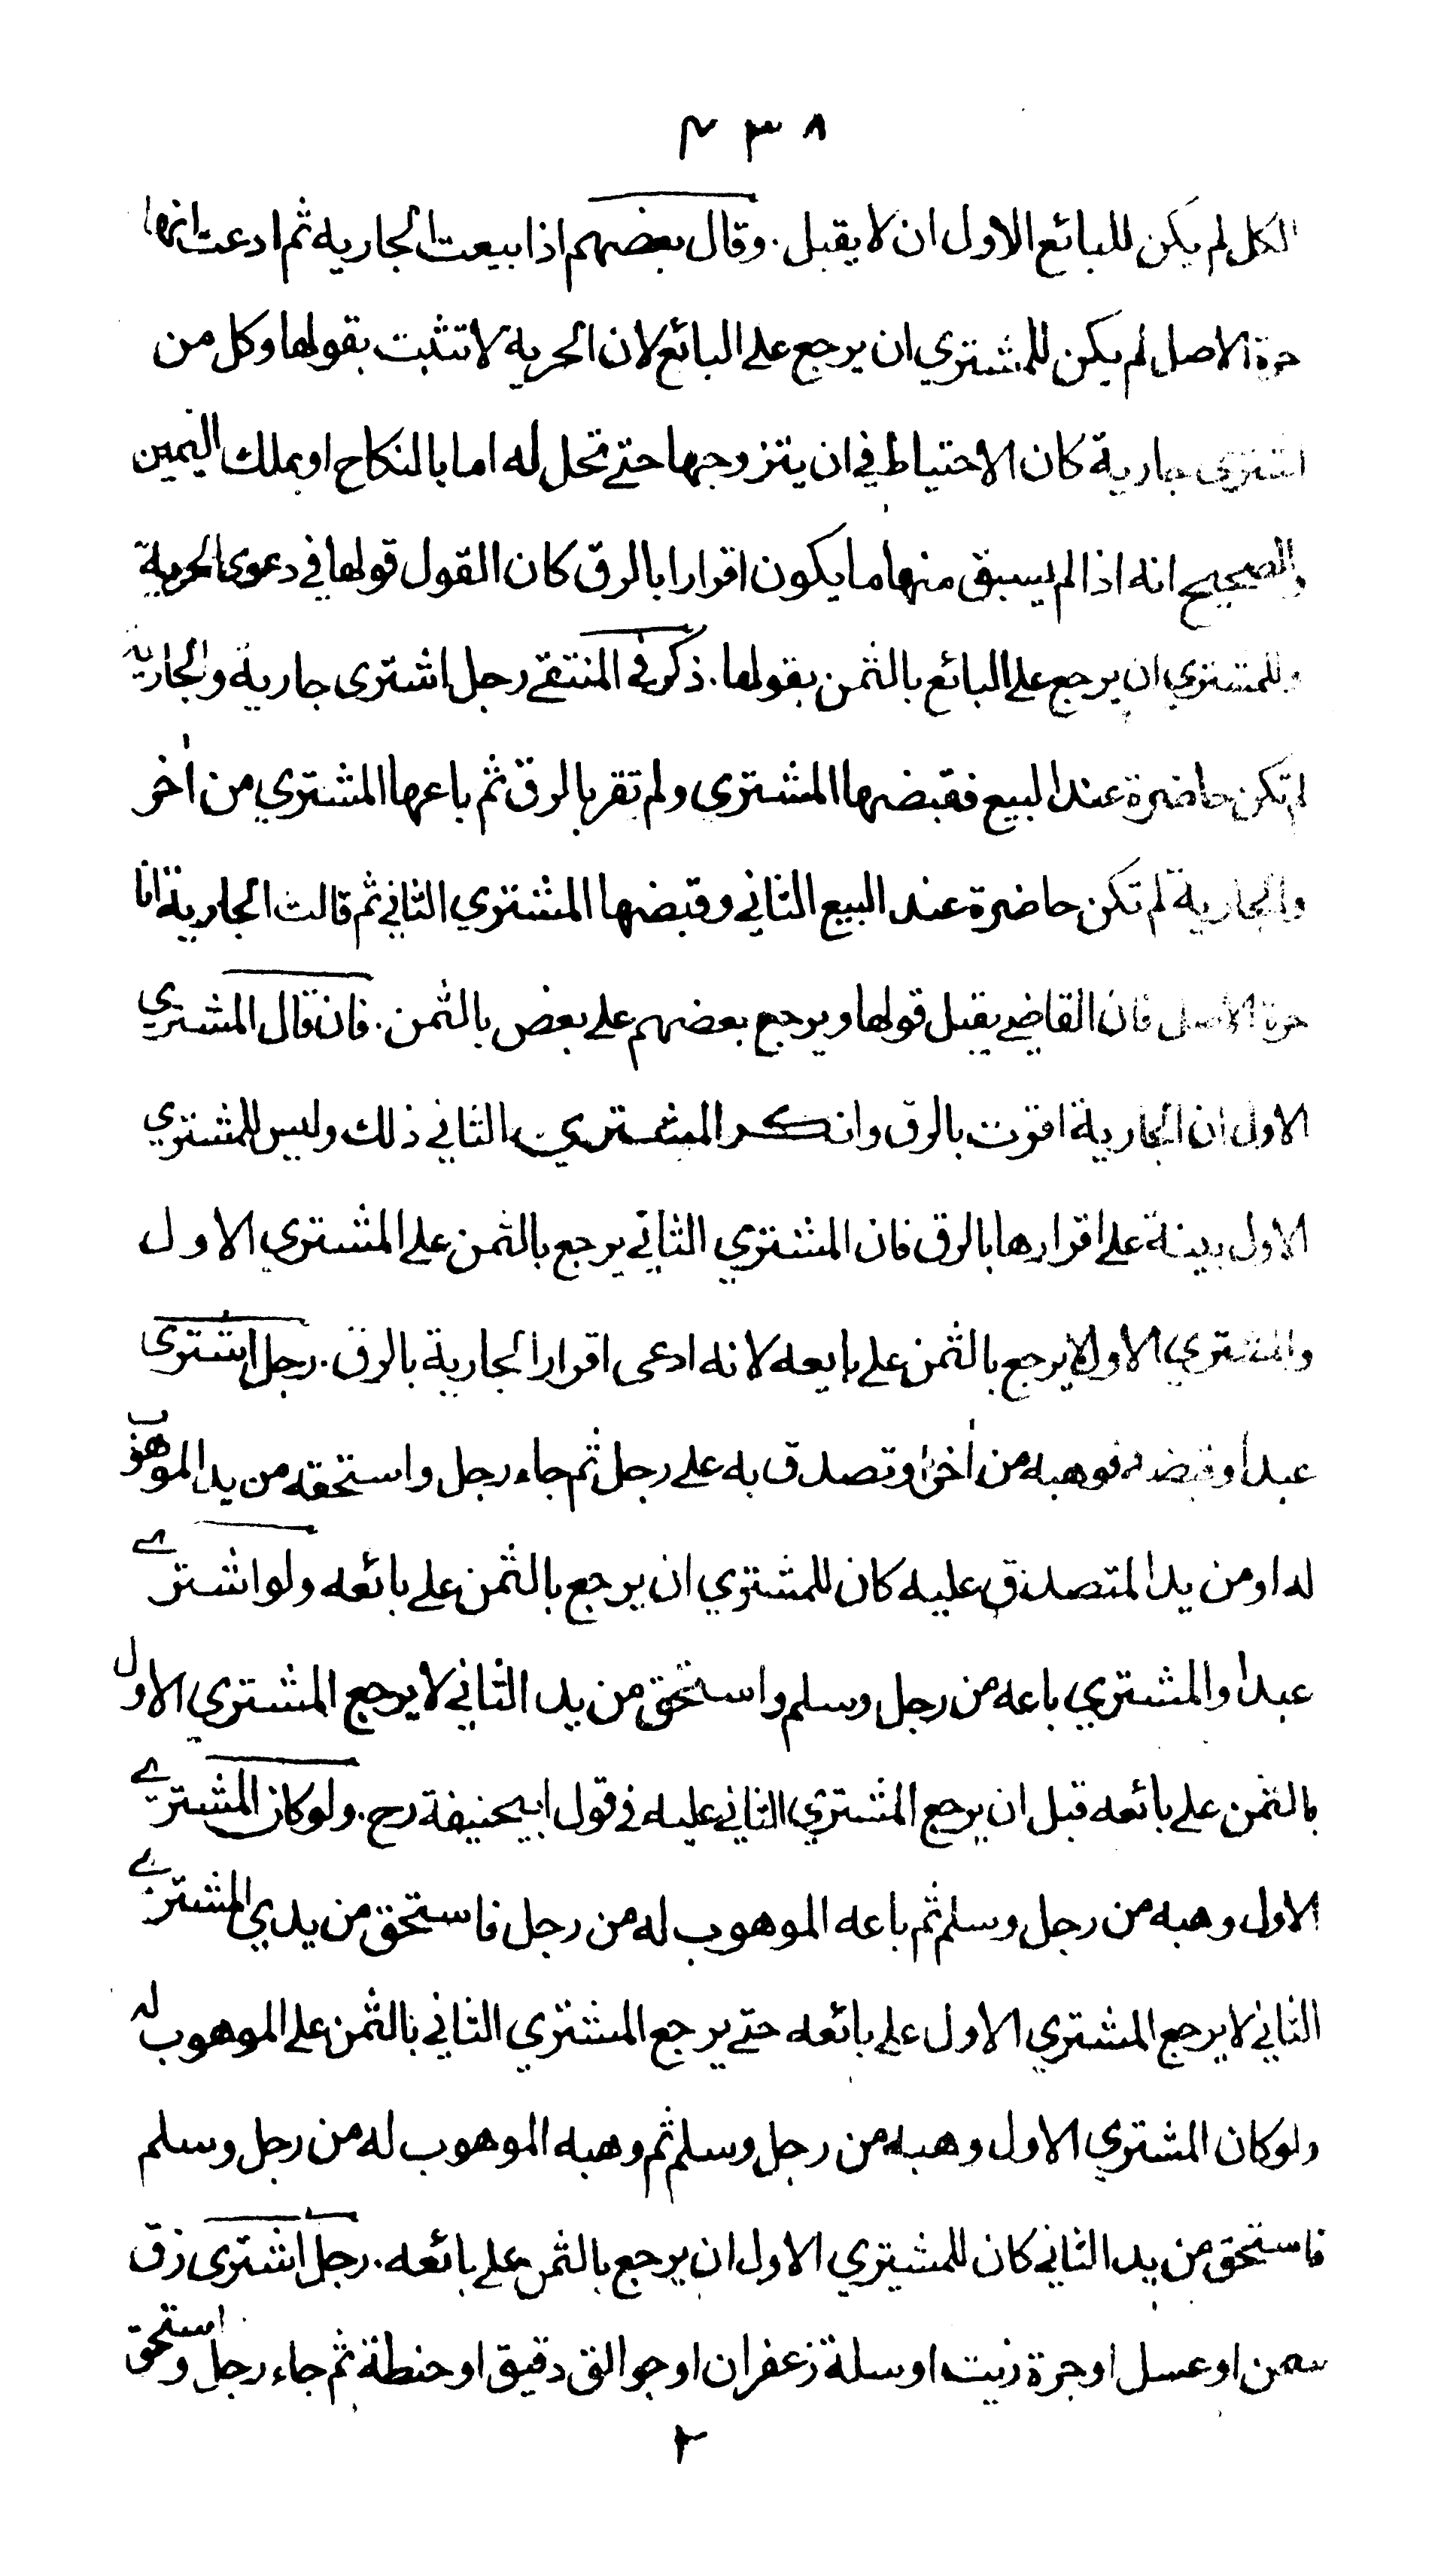 ٤٣٨
الكل لم يكن للبائع الاول ان لا يقبل. وقال بعضهم اذا بيعت الجارية ثم ادعت انها
حرة الاصل لم يكن للمشتري ان يرجع على البائع لان الحرية لا تثبت بقولها وكل من
اشترى جارية كان الاحتياط في ان يتزوجها حتى تحل له اما بالنكاح او بملك اليمين
والصحيح انه اذا لم يسبق منها ما يكون اقرارا بالرق كان القول قولها في دعوى الحرية
وللمشتري ان يرجع على البائع بالثمن بقولها. ذكر في المنتقى رجل اشترى جارية والجارية
لم تكن حاضرة عند البيع فقبضها المشتري ولم تقر بالرق ثم باعها المشتري من اٰخر
والجارية لم تكن حاضرة عند البيع الثاني وقبضها المشتري الثاني ثم قالت الجارية انا
حرة الاصل فان القاضي يقبل قولها ويرجع بعضهم على بعض بالثمن. فان قال المشتري
الاول ان الجارية اقرت بالرق وانكر المشتري الثاني ذلك وليس للمشتري
الاول بينة على اقرارها بالرق فان المشتري الثاني يرجع بالثمن على المشتري الاول
والمشتري الاول لا يرجع بالثمن على بايعه لانه ادعى اقرار الجارية بالرق. رجل اشترى
عبدا وقبضه فوهبه من اٰخر او تصدق به على رجل ثم جاء رجل واستحقه من يد الموهوب
له او من يد المتصدق عليه كان للمشتري ان يرجع بالثمن على بائعه ولو اشترى
عبدا والمشتري باعه من رجل وسلم واستحق من يد الثاني لا يرجع المشتري الاول
بالثمن على بائعه قبل ان يرجع المشتري الثاني عليه في قول ابيحنيفة رح. ولو كان المشتري
الاول وهبه من رجل وسلم ثم باعه الموهوب له من رجل فاستحق من يدي المشتري
الثاني لا يرجع المشتري الاول على بائعه حتى يرجع المشتري الثاني بالثمن على الموهوب له
ولو كان المشتري الاول وهبه من رجل وسلم ثم وهبه الموهوب له من رجل وسلم
فاستحق من يد الثاني كان للمشتري الاول ان يرجع بالثمن على بائعه. رجل اشترى زق
سمن او عسل او جرة زيت او سلة زعفران او جوالق دقيق او حنطة ثم جاء رجل واستحق
٢